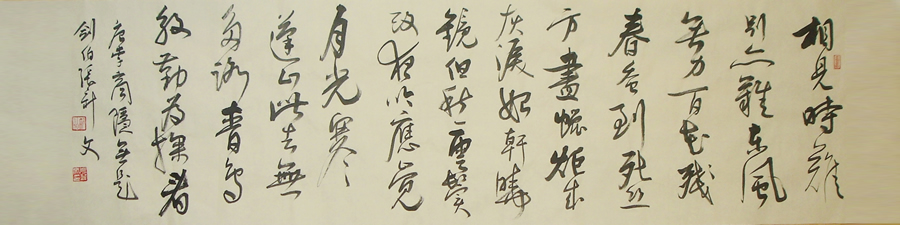 相見時難
別亦難東風
無力百花殘
春蚕到死丝
方盡蠟炬成
灰淚始乾曉
鏡但愁雲鬢
改夜吟應覺
月光寒
蓬山此去無
多路青鳥
殷勤為探看
唐李商隱無題
劍伯張計文